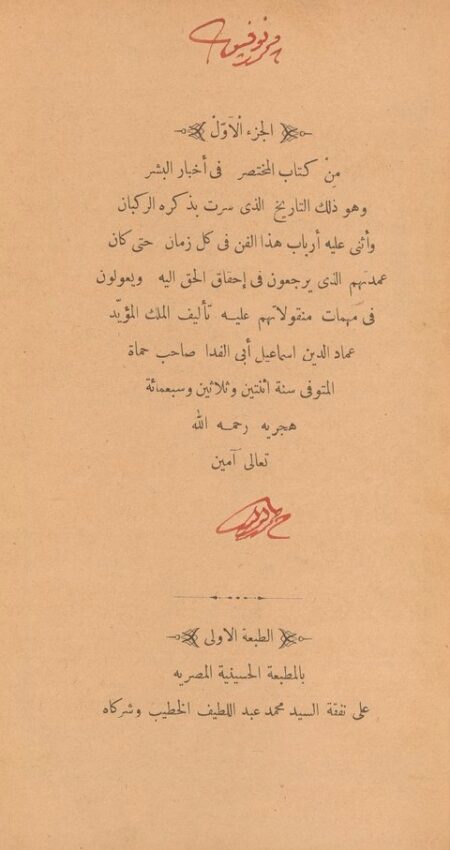 الجزء الأوّل
مِنْ كتاب المختصر فى أخبار البشر
وهو ذلك التاريخ الذى سرت بذكره الركبان
وأثنى عليه أرباب هذا الفن فى كل زمان حتى كان
عمدتهم الذى يرجعون فى إحقاق الحق اليه ويعولون
فى مهمات منقولاتهم عليه تأليف الملك المؤيّد
عماد الدين اسماعيل أبى الفدا صاحب حماة
المتوفى سنة اثنتين وثلاثين وسبعمائة
هجريه رحمه الله
تعالى آمين
الطبعة الاولى
بالمطبعة الحسينية المصريه
على نفقة السيد محمد عبد اللطيف الخطيب وشركاه